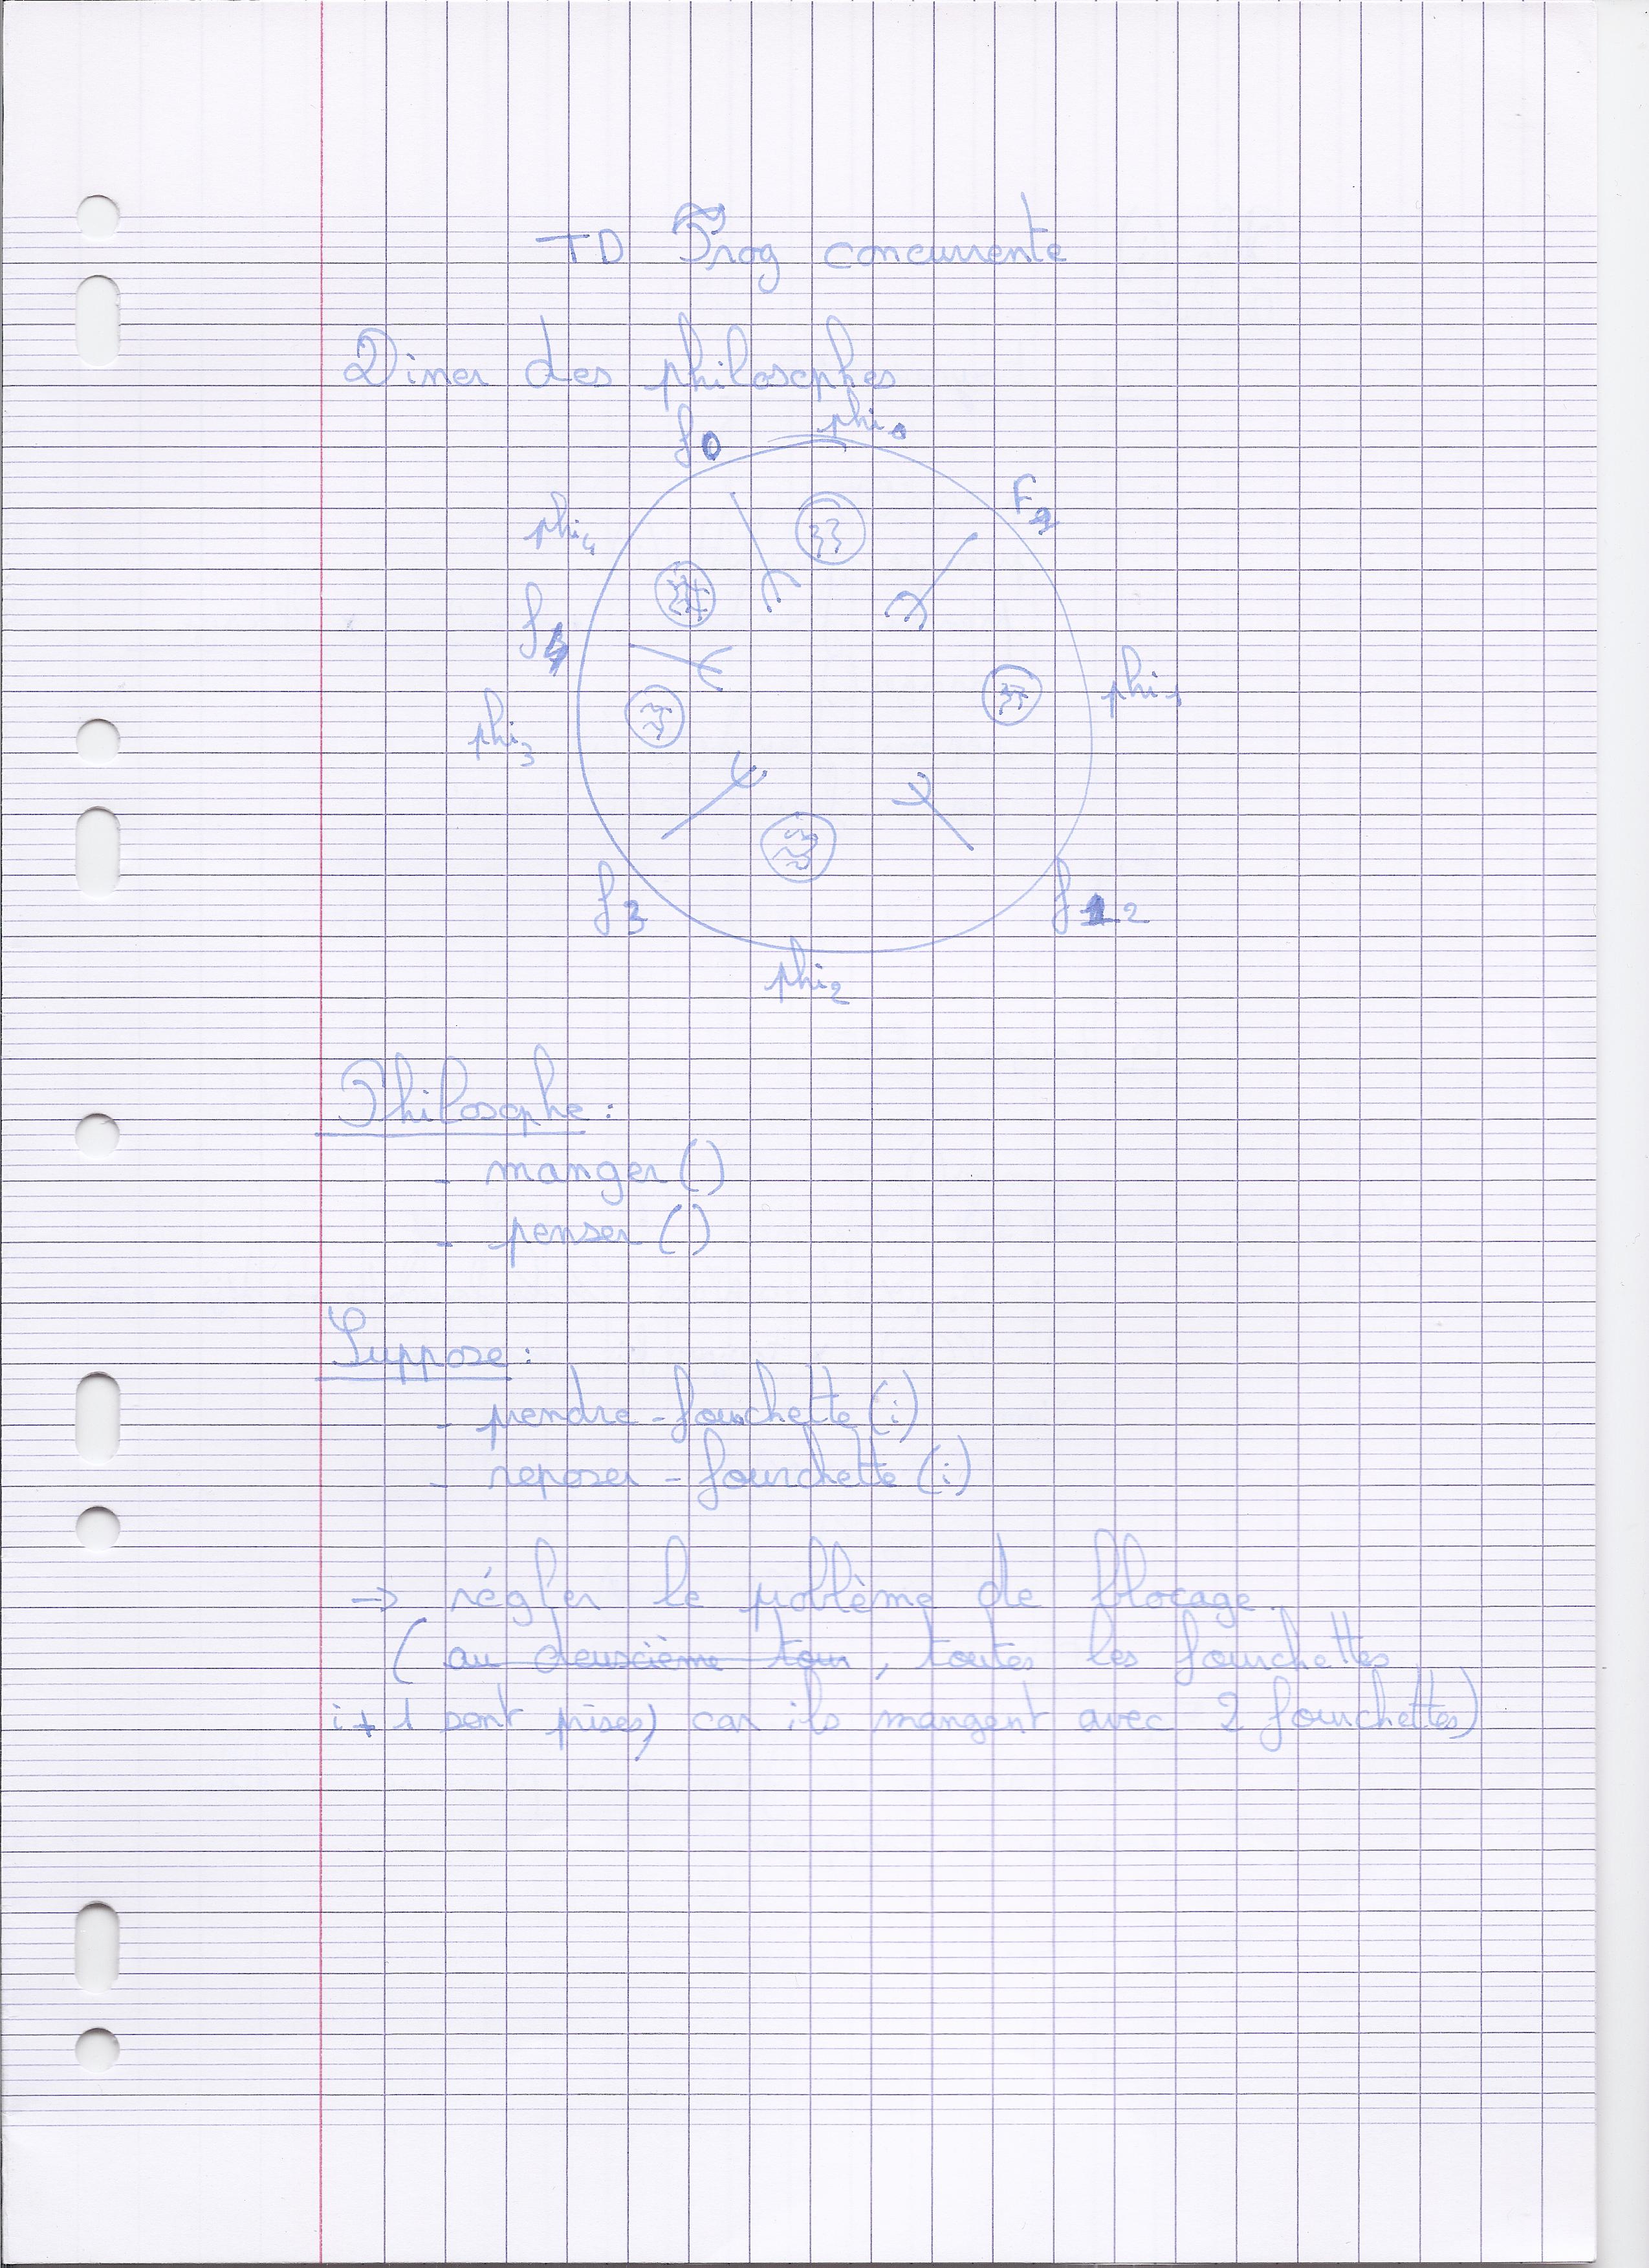 TD Prog concurrente
Diner des philosophes
f0 phi0
phi4 F1
f4
phi3 phi1
f3 f2
phi2
Philosophe :
- manger ()
- penser ()
Suppose :
- prendre-fourchette (i)
- reposer-fourchette (i)
-> régler le problème de blocage.
( au deuxième tour, toutes les fourchettes
i+1 sont prises) car ils mangent avec 2 fourchettes)